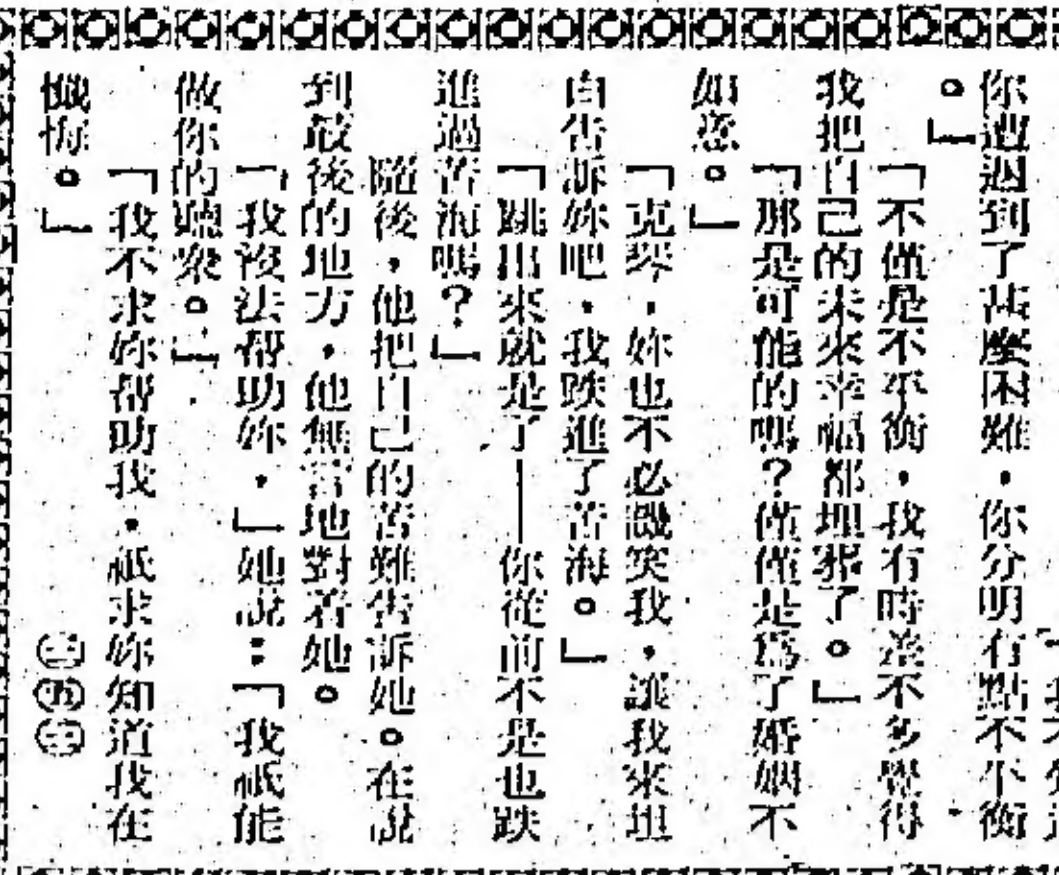 你遭遇到了甚麼困難，你分明有點不平衡
。」
「不僅是不平衡，我有時差不多覺得
我把自己的未來幸福都埋葬了。」
「那是可能的嗎？僅僅是爲了婚姻不
如意。」
「克琴，妳也不必譏笑我，讓我來坦
白告訴妳吧，我跌進了苦海。」
「跳出來就是了——你從前不是也跌
進過苦海嗎？」
隨後，他把自己的苦難告訴她。在說
到最後的地方，他無言地對着她。
「我沒法帮助妳，」她說：「我祇能
做你的聽衆。」
「我不求妳帮助我，祇求妳知道我在
懺悔。」